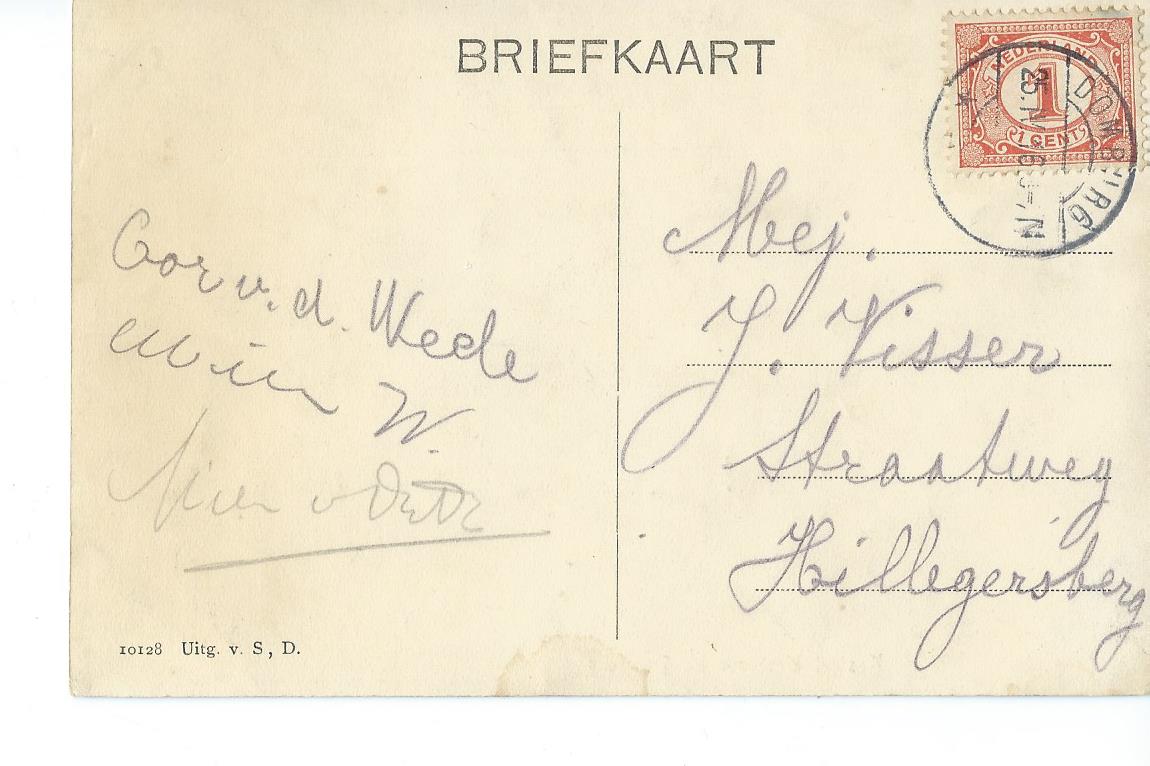 BRIEFKAART
NEDERLAND
1
1 CENT
DOMBURG
Cor v. d. Wede
Wim W.
Mej.
J. Visser
Straatweg
Hillegersberg
10128 Uitg. v. S, D.